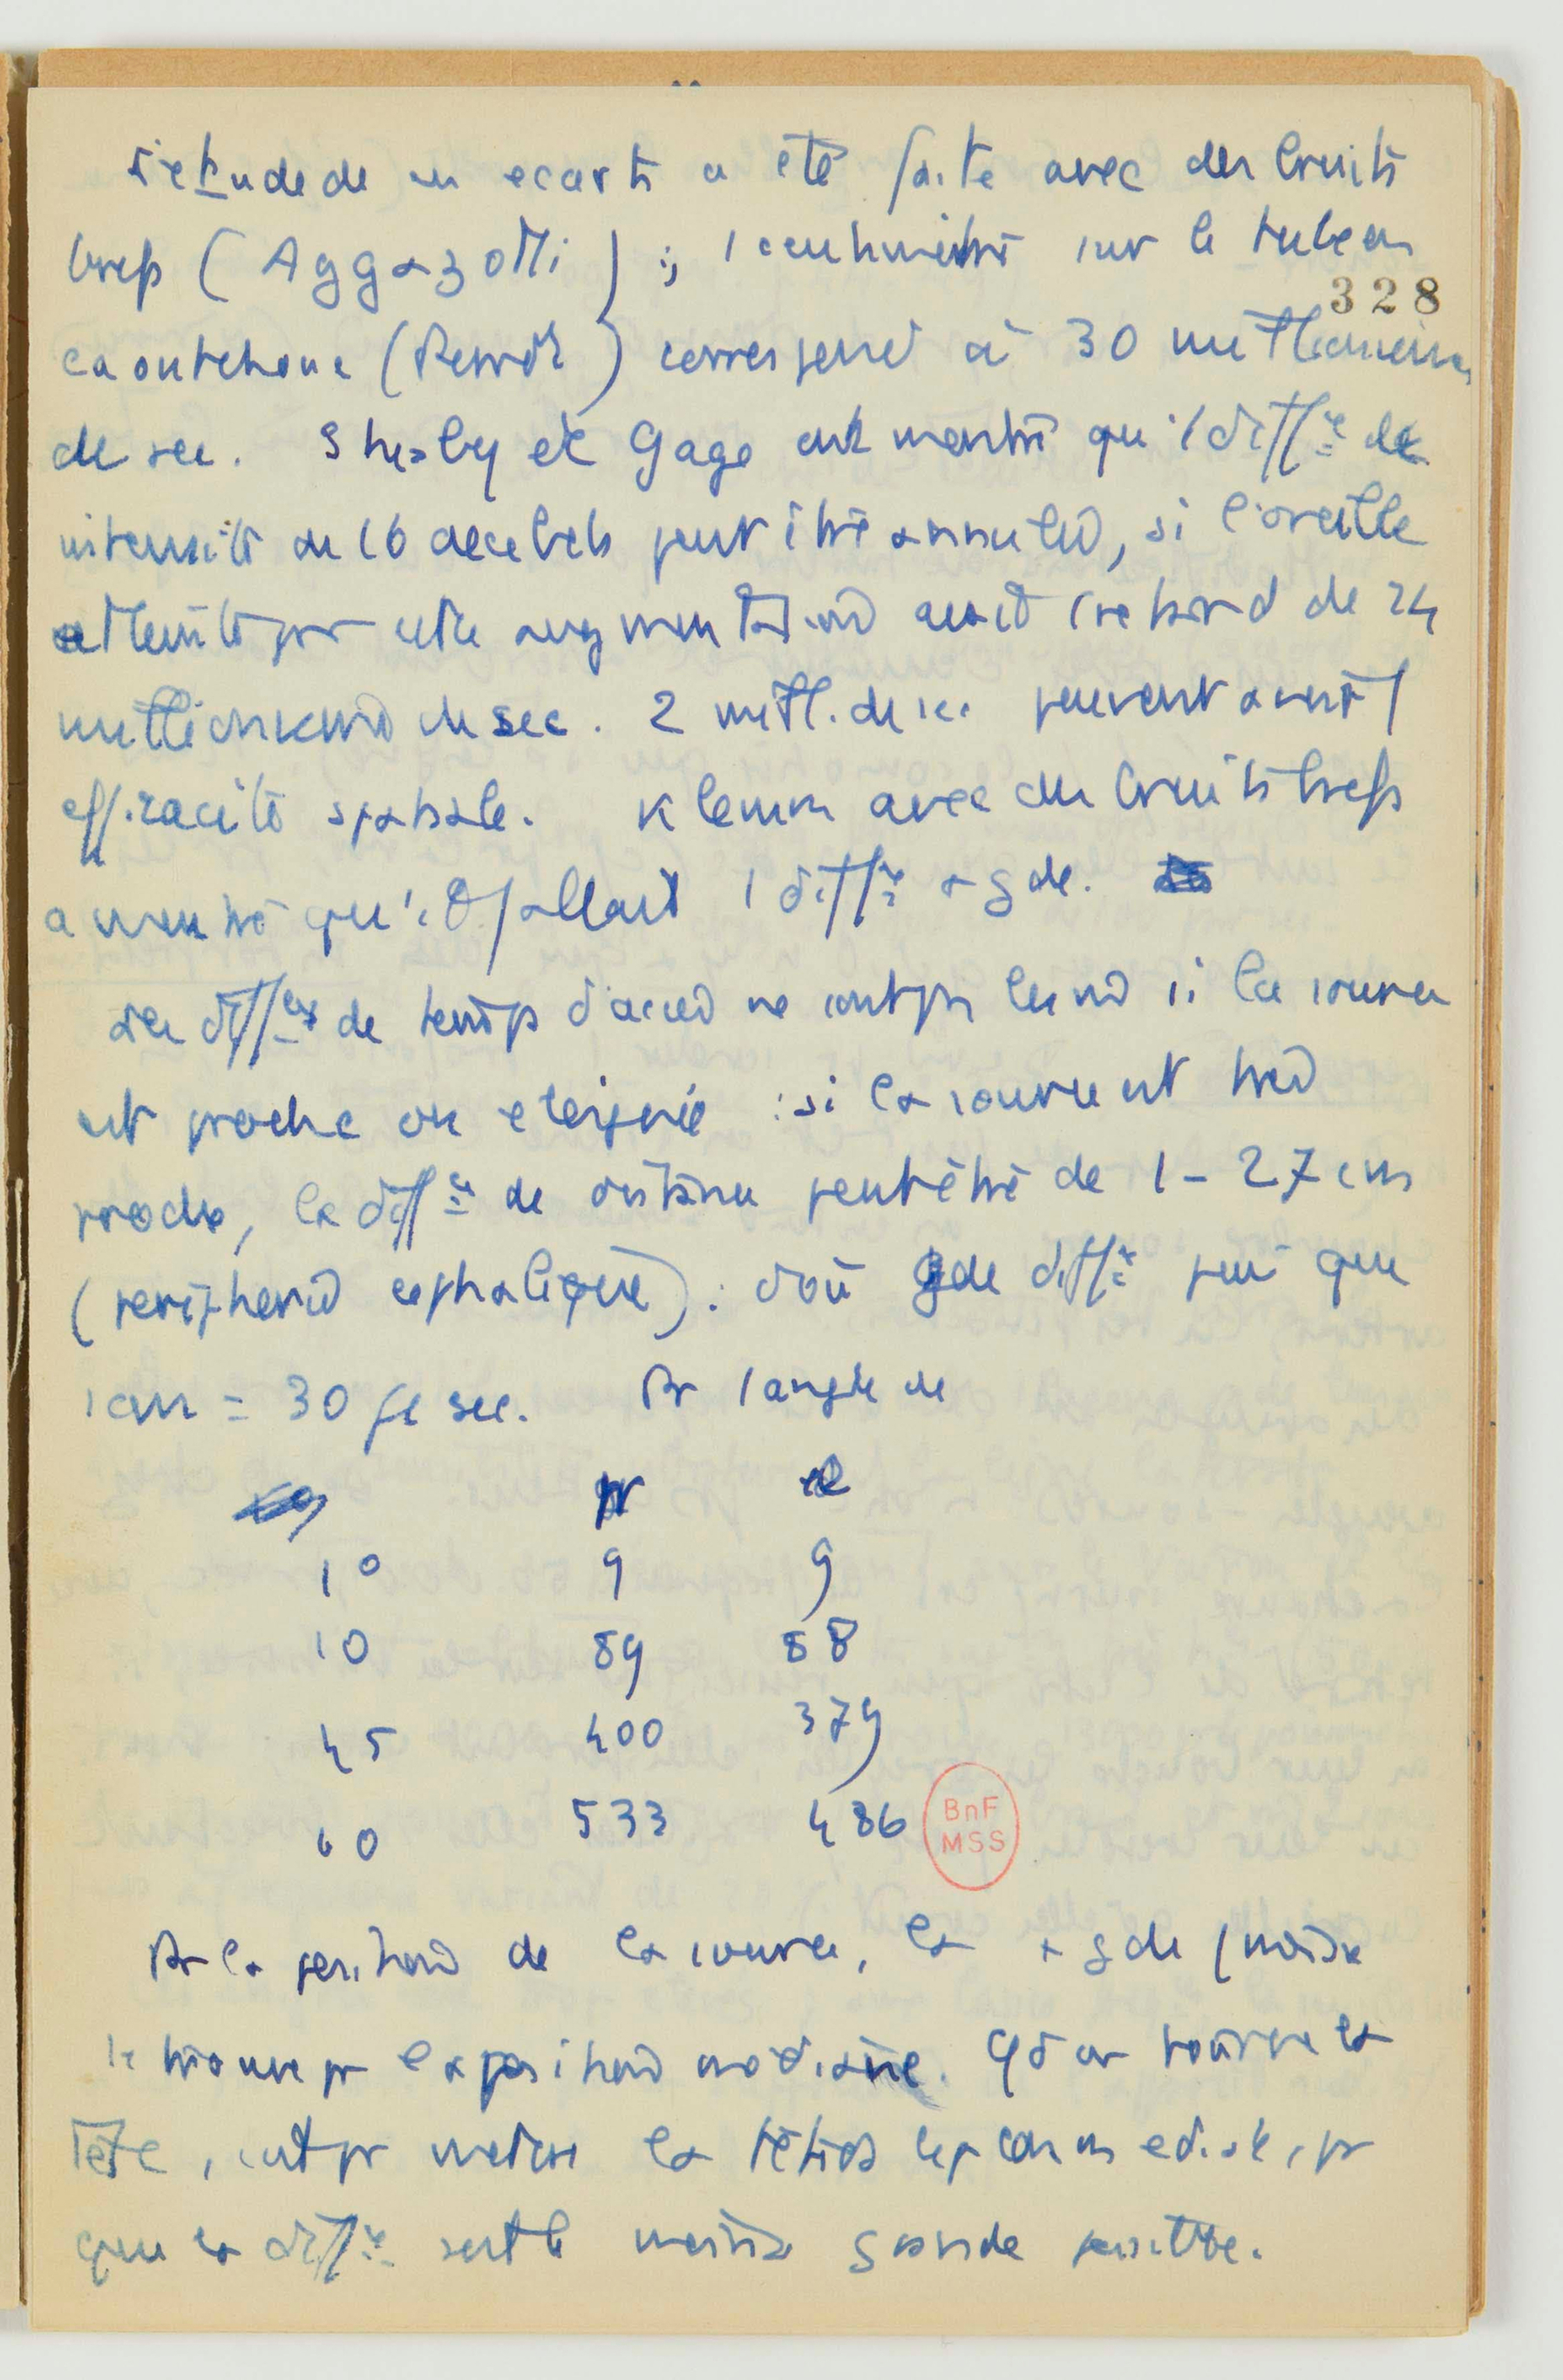 L'etude de ces ecarts a été faite avec des bruits
brefs (Aggazotti) ; 1 centimetre sur le tube en
328
caoutchouc (Pieron) correspond à 30 millioniemes
de sec. Shaxby et Gage ont montré qu'1 diffce de
intensité de 16 decibels peut être annulée, si l'oreille
atteinte par cette augmentation avait 1 retard de 24
millioniemes de sec. 2 mill. de sec peuvent avoir 1
efficacité spatiale. Klemm avec des bruits brefs
a montré qu'il fallait 1 diffce + gde.
Les diffces de temps d'accès ne sont pas les mêmes si la source
est proche ou eloignée : si la source est très
proche, la diffce de distance peut être de 1 - 27 cm
(peripherie cephalique) : d'où gde diffce puisque
1 cm = 30 de sec. Pr 1 angle de
1° 9 9
10 89 88
45 400 379
60 533 486
BnF
MSS
Pr la position de la source, la + gde finesse
se trouve pr la position mediane. Qd on tourne la
tête, c'est pr mettre la tête ds le plan mediale, pr
que la diffce soit la moins grande possible.